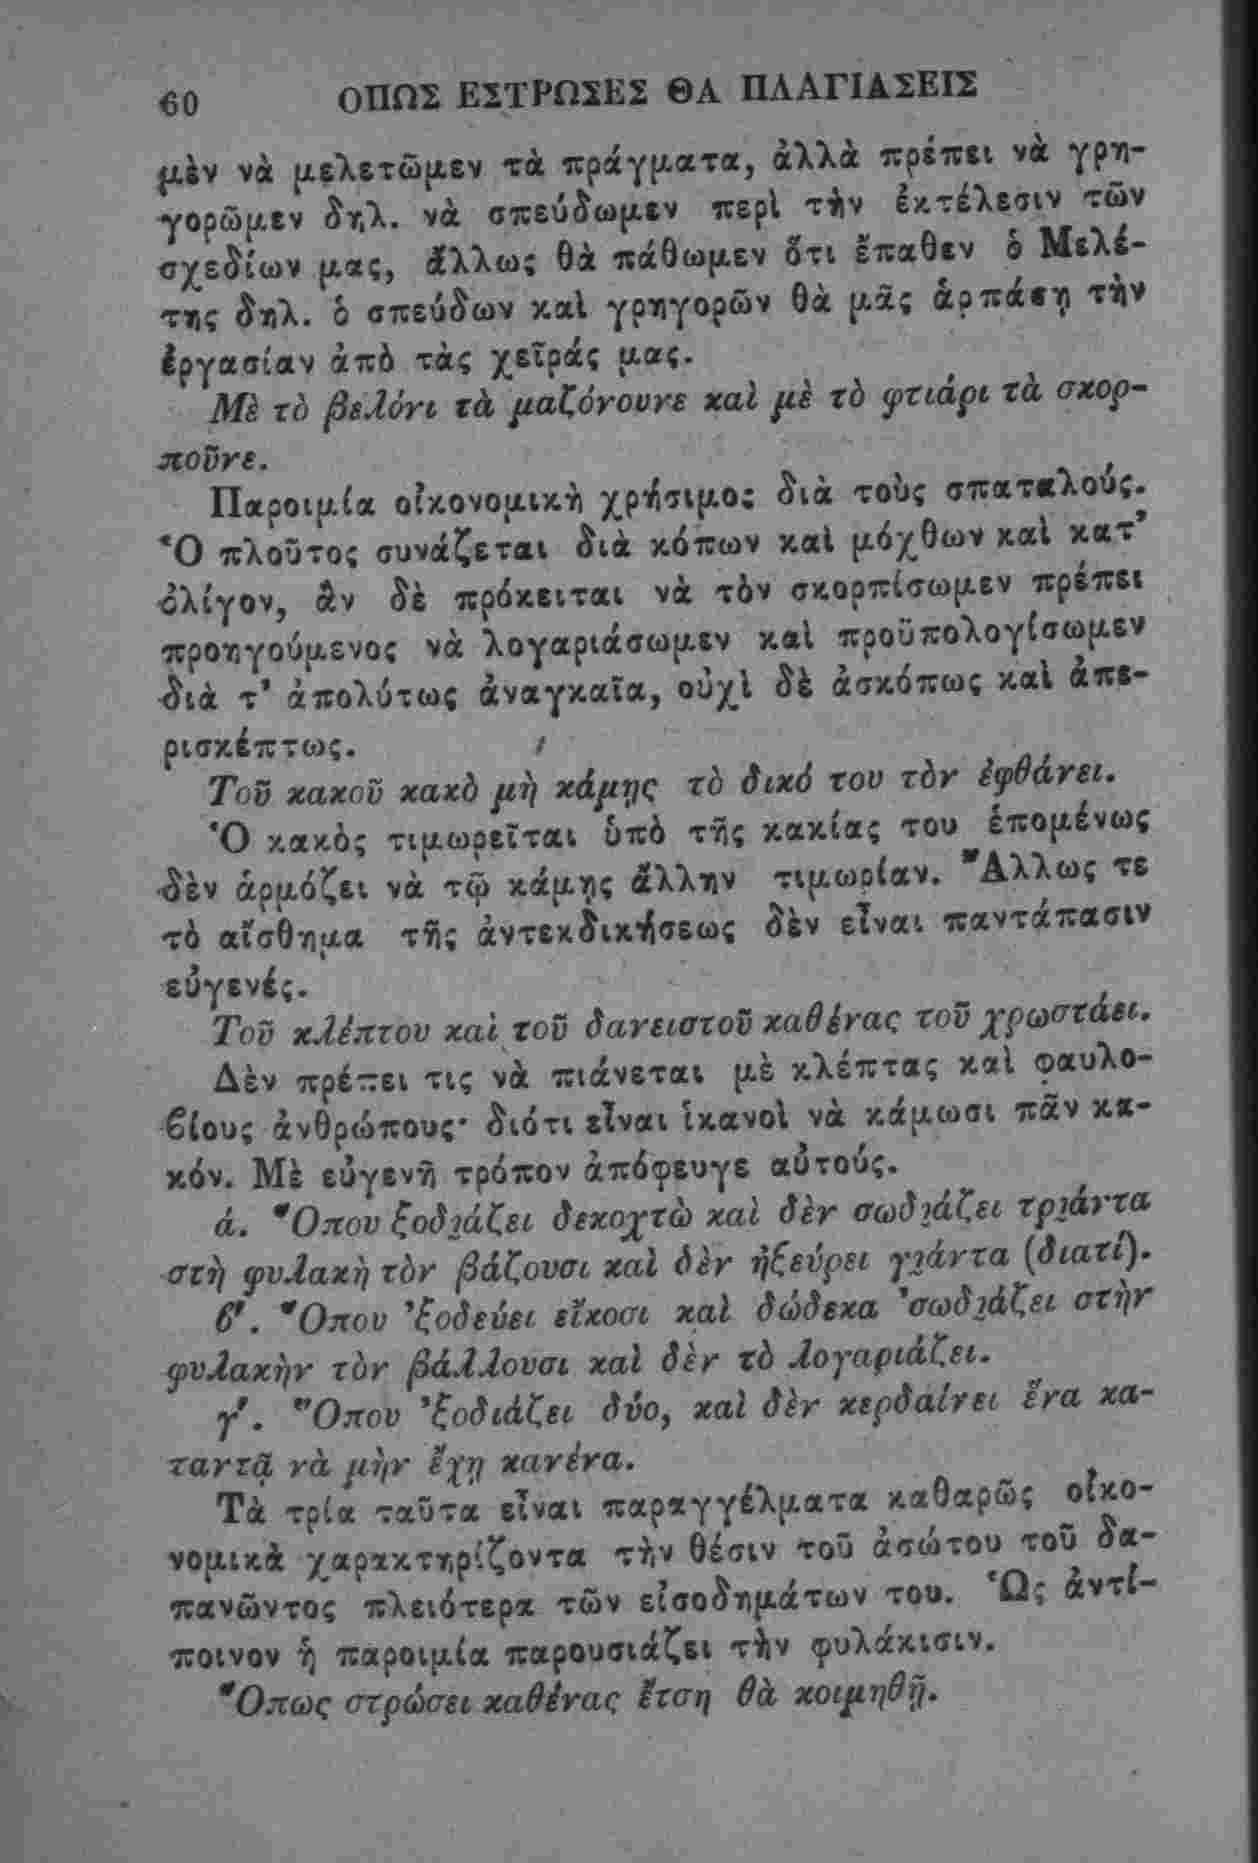 60 ΟΠΩΣ ΕΣΤΡΩΣΕΣ ΘΑ ΠΛΑΓΙΑΣΕΙΣ
μὲν νὰ μελετῶμεν τὰ πράγματα, ἀλλὰ πρέπει νὰ γρη-
γορῶμεν δηλ. νὰ σπεύδωμεν περὶ τὴν ἐκτέλεσιν τῶν
σχεδίων μας, ἄλλως θὰ πάθωμεν ὅτι ἔπαθεν ὁ Μελέ-
της δηλ. ὁ σπεύδων καὶ γρηγορῶν θὰ μᾶς ἁρπάσῃ τὴν
ἐργασίαν ἀπὸ τὰς χεῖράς μας.
Μὲ τὸ βελόνι τὰ μαζόνουνε καὶ μὲ τὸ φτιάρι τὰ σκορ-
ποῦνε.
Παροιμία οἰκονομικὴ χρήσιμος διὰ τοὺς σπαταλούς.
Ὁ πλοῦτος συνάζεται διὰ κόπων καὶ μόχθων καὶ κατ’
ὀλίγον, ἂν δὲ πρόκειται νὰ τὸν σκορπίσωμεν πρέπει
προηγούμενος νὰ λογαριάσωμεν καὶ προϋπολογίσωμεν
διὰ τ’ ἀπολύτως ἀναγκαῖα, οὐχὶ δὲ ἀσκόπως καὶ ἀπε-
ρισκέπτως.
Τοῦ κακοῦ κακὸ μὴ κάμῃς τὸ δικό του τὸν ἐφθάνει.
Ὁ κακὸς τιμωρεῖται ὑπὸ τῆς κακίας του ἑπομένως
δὲν ἁρμόζει νὰ τῷ κάμῃς ἄλλην τιμωρίαν. Ἄλλως τε
τὸ αἴσθημα τῆς ἀντεκδικήσεως δὲν εἶναι παντάπασιν
εὐγενές.
Τοῦ κλέπτου καὶ τοῦ δανειστοῦ καθένας τοῦ χρωστάει.
Δὲν πρέπει τις νὰ πιάνεται μὲ κλέπτας καὶ φαυλο-
βίους ἀνθρώπους· διότι εἶναι ἱκανοὶ νὰ κάμωσι πᾶν κα-
κόν. Μὲ εὐγενῆ τρόπον ἀπόφευγε αὐτούς.
ά. Ὅπου ξοδιάζει δεκοχτὼ καὶ δὲν σωδιάζει τριάντα
στὴ φυλακὴ τὸν βάζουσι καὶ δὲν ἠξεύρει γιάντα (διατί).
β'. Ὅπου ’ξοδεύει εἴκοσι καὶ δώδεκα ’σωδιάζει στὴν
φυλακὴν τὸν βάλλουσι καὶ δὲν τὸ λογαριάζει.
γ'. Ὅπου ’ξοδιάζει δύο, καὶ δὲν κερδαίνει ἕνα κα-
ταντᾷ νὰ μὴν ἔχῃ κανένα.
Τὰ τρία ταῦτα εἶναι παραγγέλματα καθαρῶς οἰκο-
νομικὰ χαρακτηρίζοντα τὴν θέσιν τοῦ ἀσώτου τοῦ δα-
πανῶντος πλειότερα τῶν εἰσοδημάτων του. Ὡς ἀντί-
ποινον ἡ παροιμία παρουσιάζει τὴν φυλάκισιν.
Ὅπως στρώσει καθένας ἔτση θὰ κοιμηθῇ.